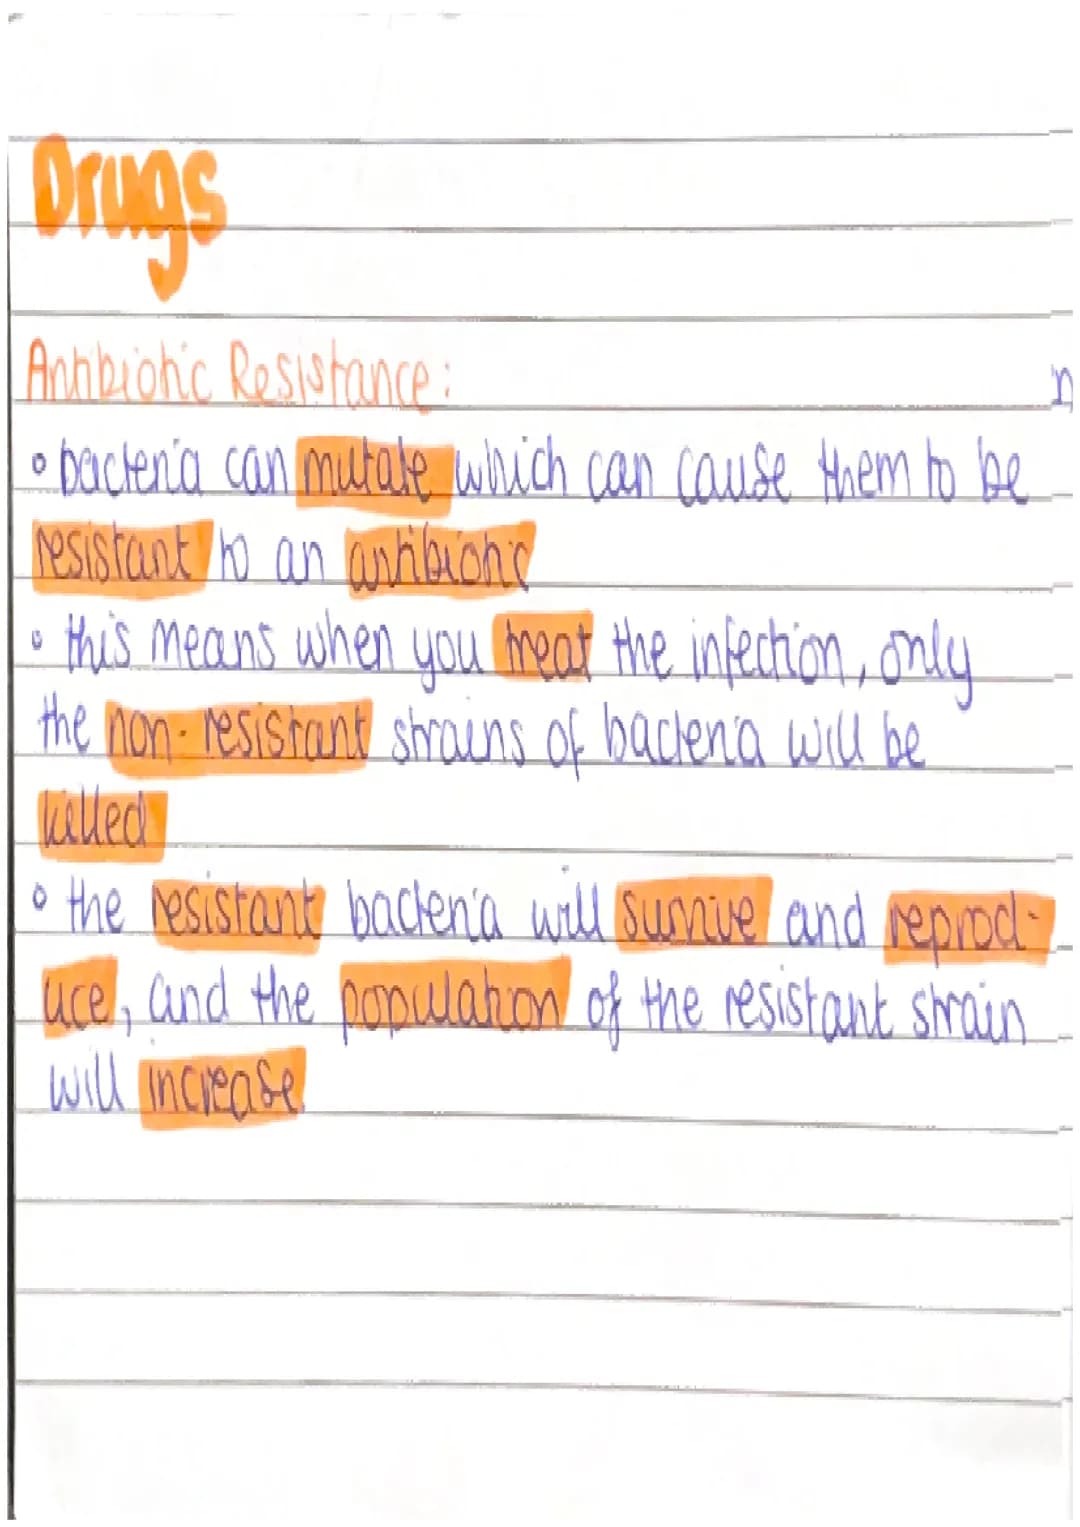 Drugs
Antibiotic Resistance:
• bacteria can mutate which can cause them to be
resistant to an antibiotic
• this means when you treat the infection, only
the non-resistant strains of bacteria will be
killed
• the resistant bacteria will survive and reprod-
uce, and the population of the resistant strain
will increase.